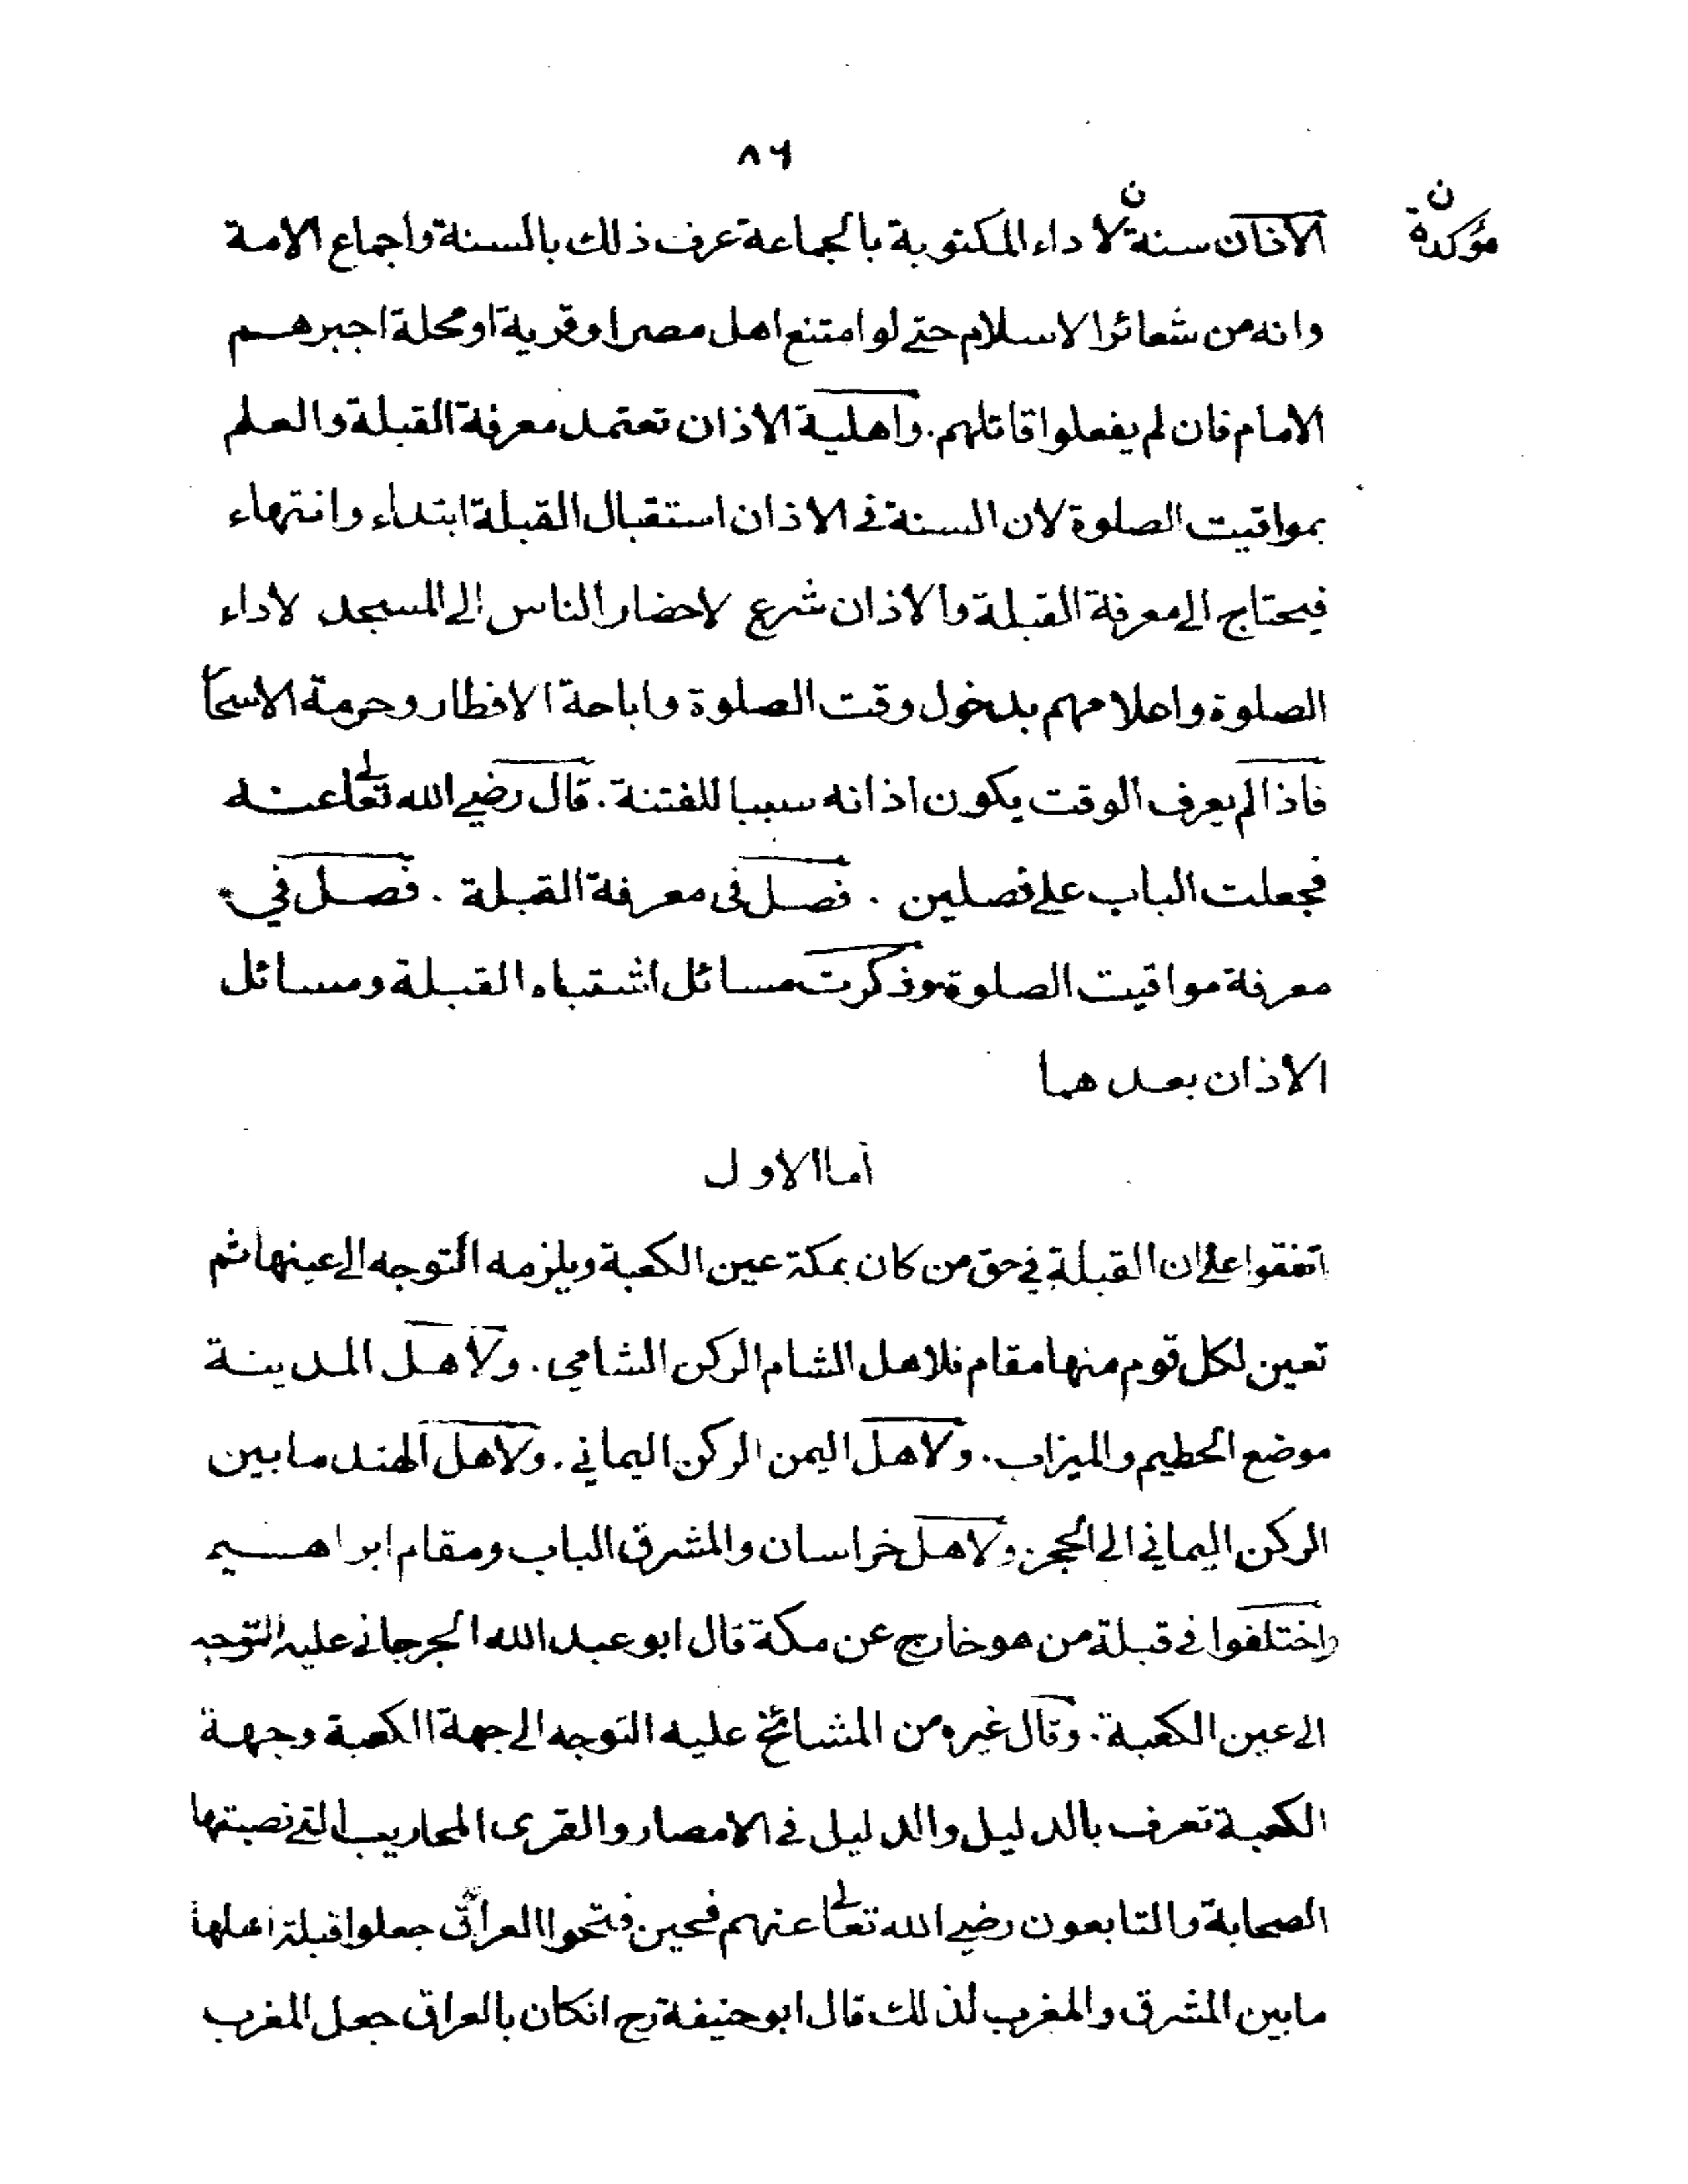 ٨٦
ن
مؤكدة
ن
الاذان سنة لاداء المكتوبة بالجماعة عرف ذلك بالسنة واجماع الامة
وانه من شعائر الاسلام حتى لو امتنع اهل مصر او قرية او محلة اجبرهم
الامام فان لم يفعلوا قاتلهم. واهلية الاذان تعتمد معرفة القبلة والعلم
بمواقيت الصلوة لان السنة فى الاذان استقبال القبلة ابتداء وانتهاء
فيحتاج الى معرفة القبلة والاذان شرع لاحضار الناس الى المسجد لاداء
الصلوة واعلامهم بدخول وقت الصلوة واباحة الافطار وحرمة الاسحا
فاذا لم يعرف الوقت يكون اذانه سببا للفتنة. قال رضي الله تعالى عنه
فجعلت الباب على فصلين . فصل فى معرفة القبلة . فصل في
معرفة مواقيت الصلوة وذكرت مسائل اشتباه القبلة ومسائل
الاذان بعدهما
اما الاول
اتفقوا على ان القبلة في حق من كان بمكة عين الكعبة ويلزمه التوجه الى عينها ثم
تعين لكل قوم منها مقام فلاهل الشام الركن الشامي. ولاهل المدينة
موضع الحطيم والميزاب. ولاهل اليمن الركن اليماني. ولاهل الهند ما بين
الركن اليماني الى الحجر. ولاهل خراسان والمشرق الباب ومقام ابراهيم
واختلفوا فى قبلة من هو خارج عن مكة قال ابو عبد الله الجرجانى عليه التوجه
الى عين الكعبة. وقال غيره من المشائخ عليه التوجه الى جهة الكعبة وجهة
الكعبة تعرف بالدليل والدليل فى الامصار والقرى المحاريب التى نصبتها
الصحابة والتابعون رضي الله تعالى عنهم فحين فتحوا العراق جعلوا قبلة اهلها
ما بين المشرق والمغرب لذلك قال ابو حنيفة رح انكان بالعراق جعل المغرب